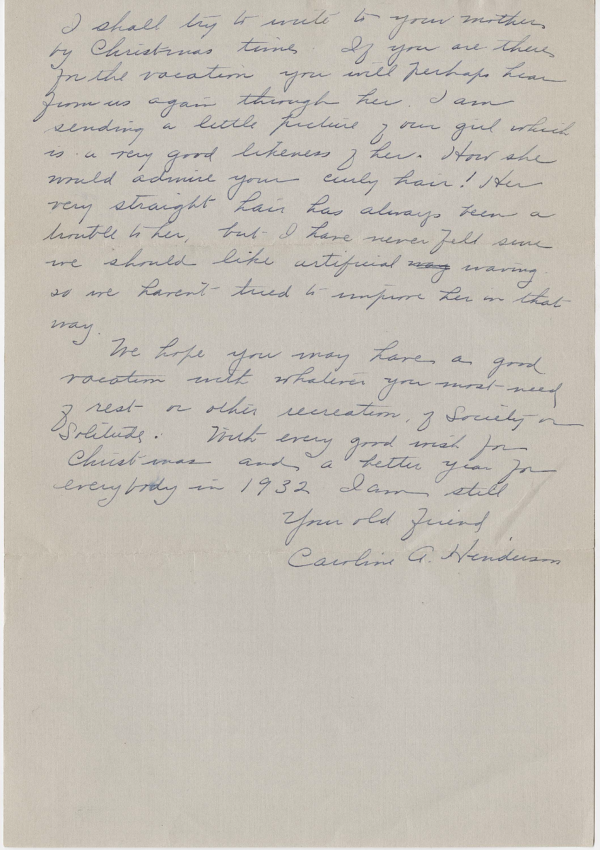 I shall try to write to your mother
by Christmas time. If you are there
for the vacation you will perhaps hear
from us again through her. I am
sending a little picture of our girl which
is a very good likeness of her. How she
would admire your curly hair! Her
very straight hair has always been a
trouble to her, but I have never felt sure
we should like artificial way waving
so we haven't tried to improve her in that
way.
We hope you may have a good
vacation with whatever you most need
of rest or other recreation, of Society or
Solitude. With every good wish for
Christmas and a better year for
everybody in 1932 I am still
Your old friend
Caroline A. Henderson